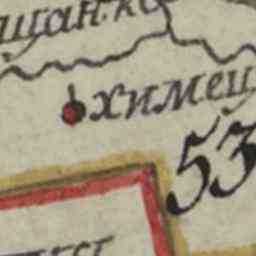 щанко
химец
53